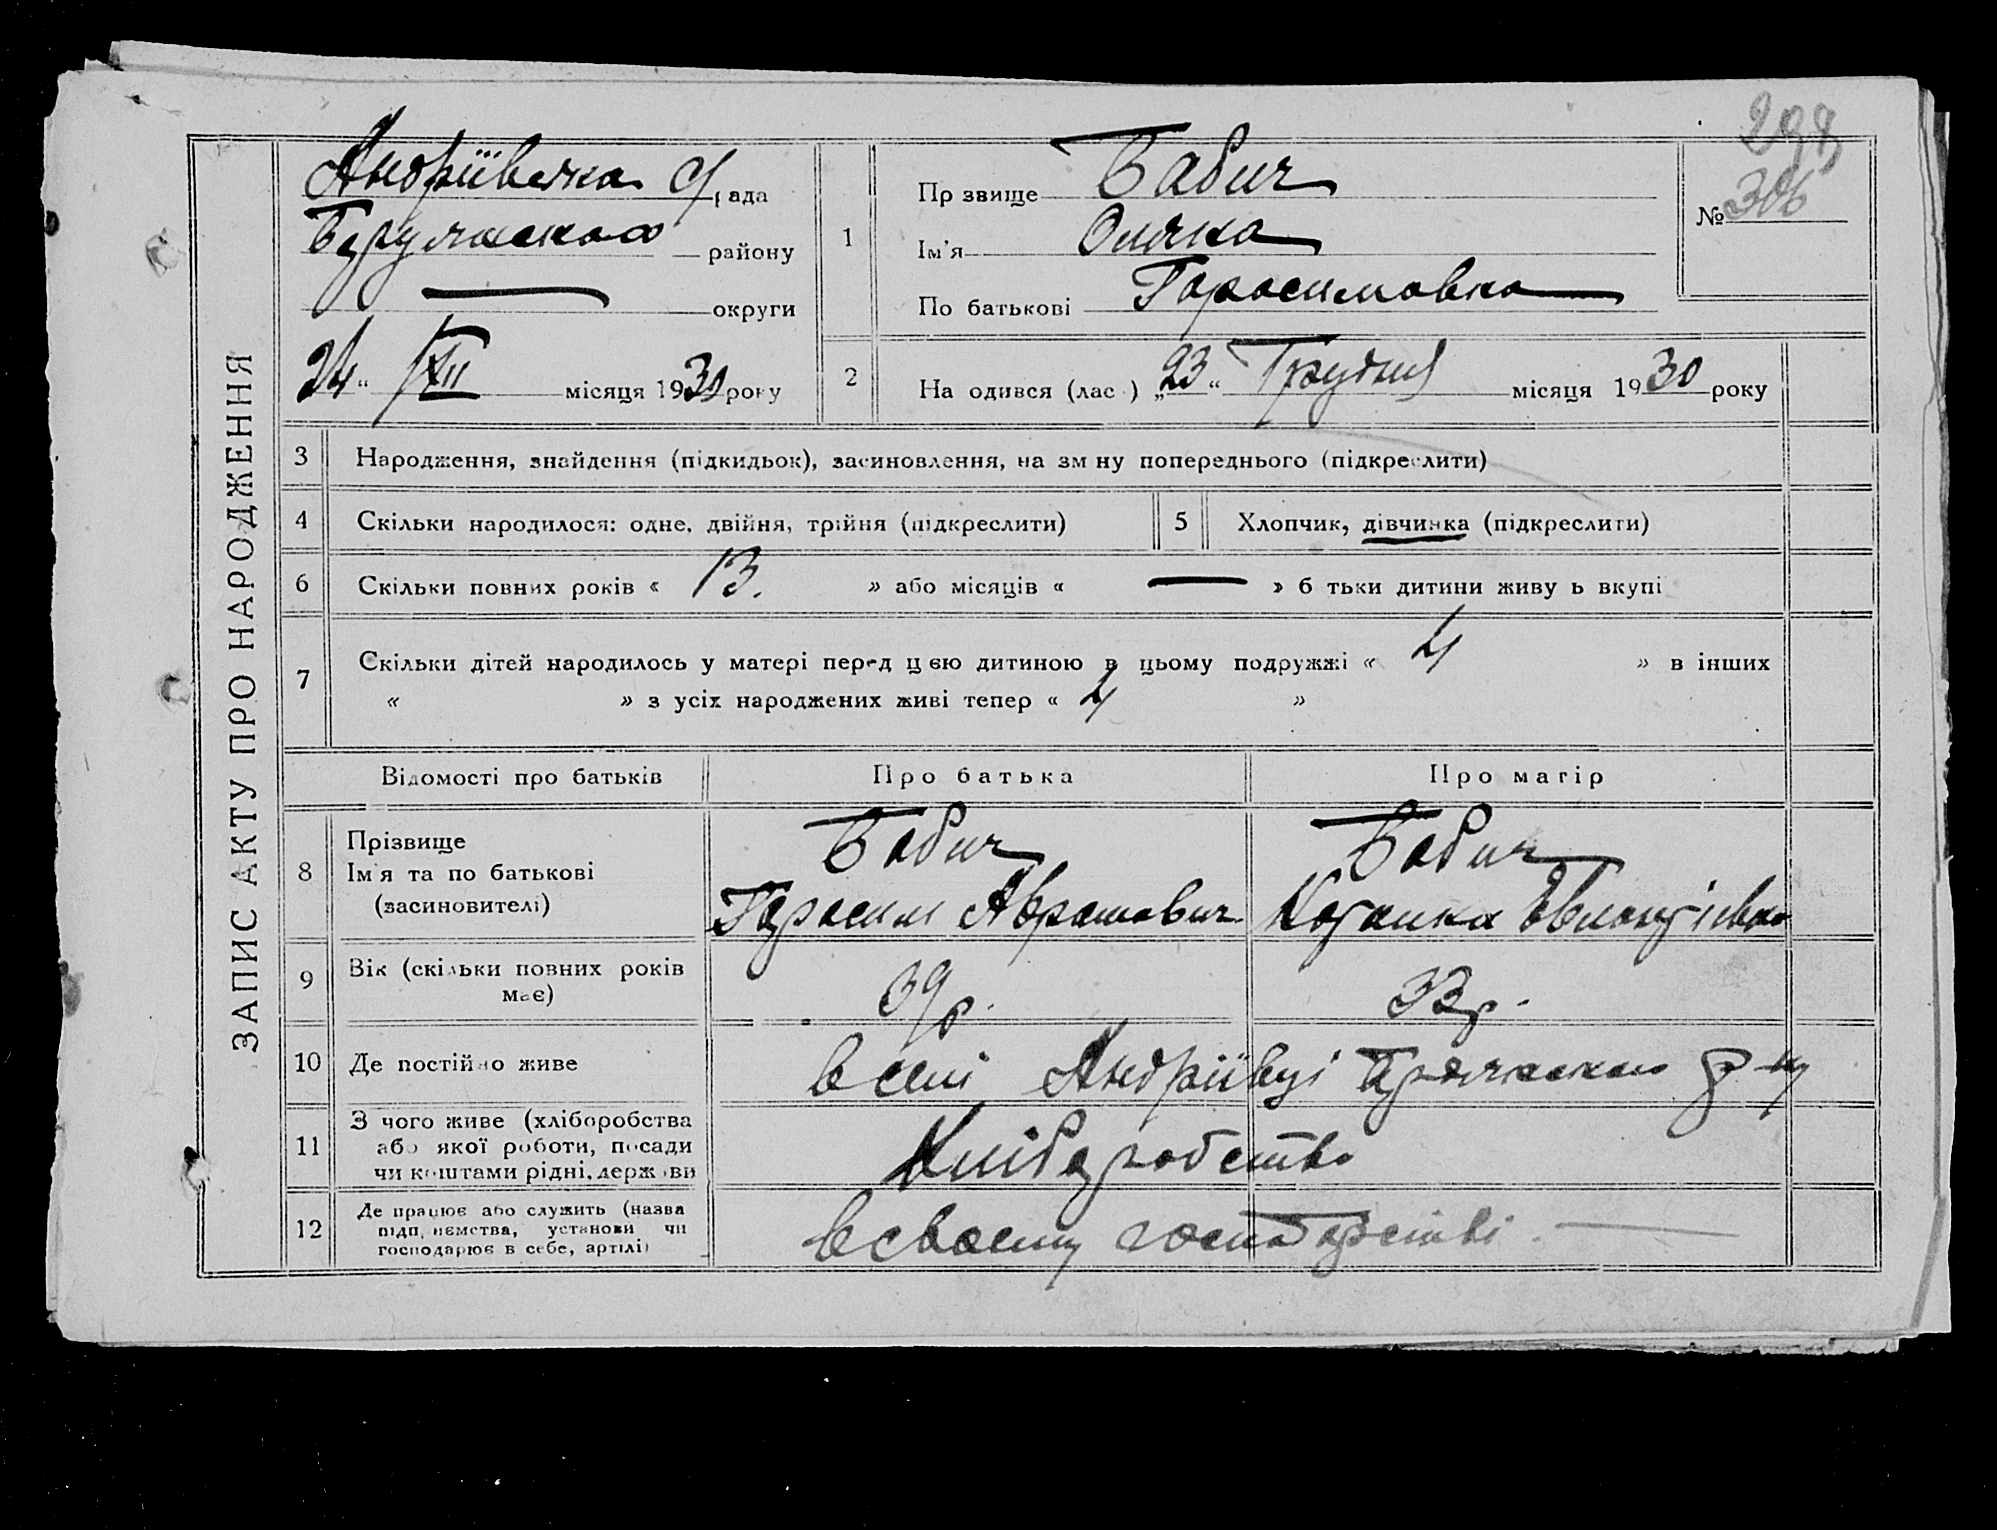 ЗАПИС АКТУ ПРО НАРОДЖЕННЯ
Андріївська с/рада
району
округи
24 " XII місяця 1930 року
1
Пр звище Бабич
Ім'я
По батькові Гарасимовна
298
№ 306
2
На одився (лас ) „23" Грудня місяця 1930 року
3 Народження, знайдення (підкидьок), засиновлення, на зм ну попереднього (підкреслити)
4 Скільки народилося: одне, двійня, трійня (підкреслити)
5 Хлопчик, дівчинка (підкреслити)
6 Скільки повних років « 13. » або місяців « — » б тьки дитини живу ь вкупі
7 Скільки дітей народилось у матері перед ц ею дитиною в цьому подружжі « 4 » в інших
« » з усіх народжених живі тепер « 4 »
Відомості про батьків Про батька Про матір
8 Прізвище
Ім'я та по батькові
(засиновителі)
Бабич
Гарасим Аврамович
Бабич
9 Вік (скільки повних років
має)
39 р.
33 р.
10 Де постійно живе
в селі Андріївці р-ну
11 З чого живе (хліборобства
або якої роботи, посади
чи коштами рідні, держави
Хліборобство
12 Де працює або служить (назва
підп иємства, установи чи
господарює в себе, артілі)
в своєму господарстві.